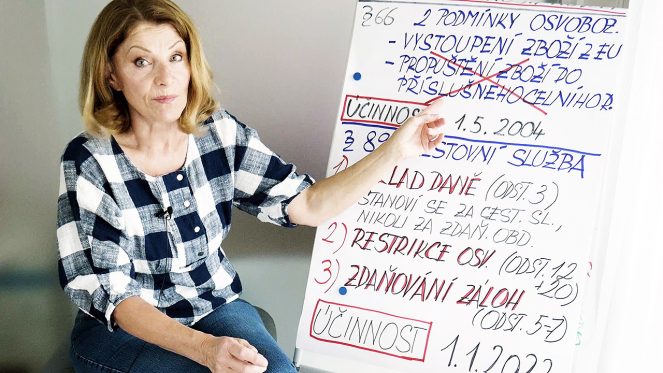 §66 2 PODMÍNKY OSVOBOZ.
- VYSTOUPENÍ ZBOŽÍ Z EU
- PROPUŠTĚNÍ ZBOŽÍ DO
PŘÍSLUŠNÉHO CELNÍHO R.
ÚČINNOST 1.5.2004
§ 89 STOVNÍ SLUŽBA
1) LAD DANĚ (ODST. 3)
STANOVÍ SE ZA CEST. SL.,
NIKOLI ZA ZDAŇ. OBD.
2) RESTRIKCE OSV. (ODST. 12
+20)
3) ZDAŇOVÁNÍ ZÁLOH
(ODST. 5-7)
ÚČINNOST 1.1.2022